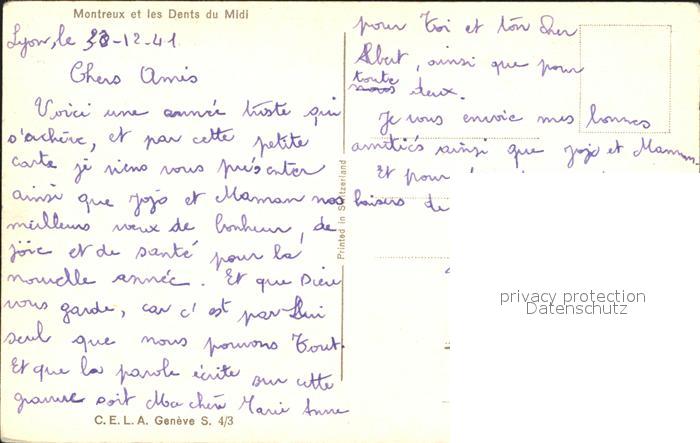 Montreux et les Dents du Midi
Lyon, le 30-12-41
Chers Amis
Voici une année triste qui
s'achève, et par cette petite
carte je viens vous présenter
ainsi que Jojo et Maman nos
meilleurs vœux de bonheur, de
joie et de santé pour la
nouvelle année. Et que Dieu
vous garde, car c'est par Lui
seul que nous pouvons tout.
Et que la parole écrite sur cette
gravure soit Ma chère Marie Anne
C.E.L.A. Genève S. 4/3
Printed in Switzerland
pour toi et ton cher
Albert, ainsi que pour
toute
deux.
Je vous envoie mes bonnes
amitiés ainsi que Jojo et Maman
Et pour
baisers de
privacy protection
Datenschutz